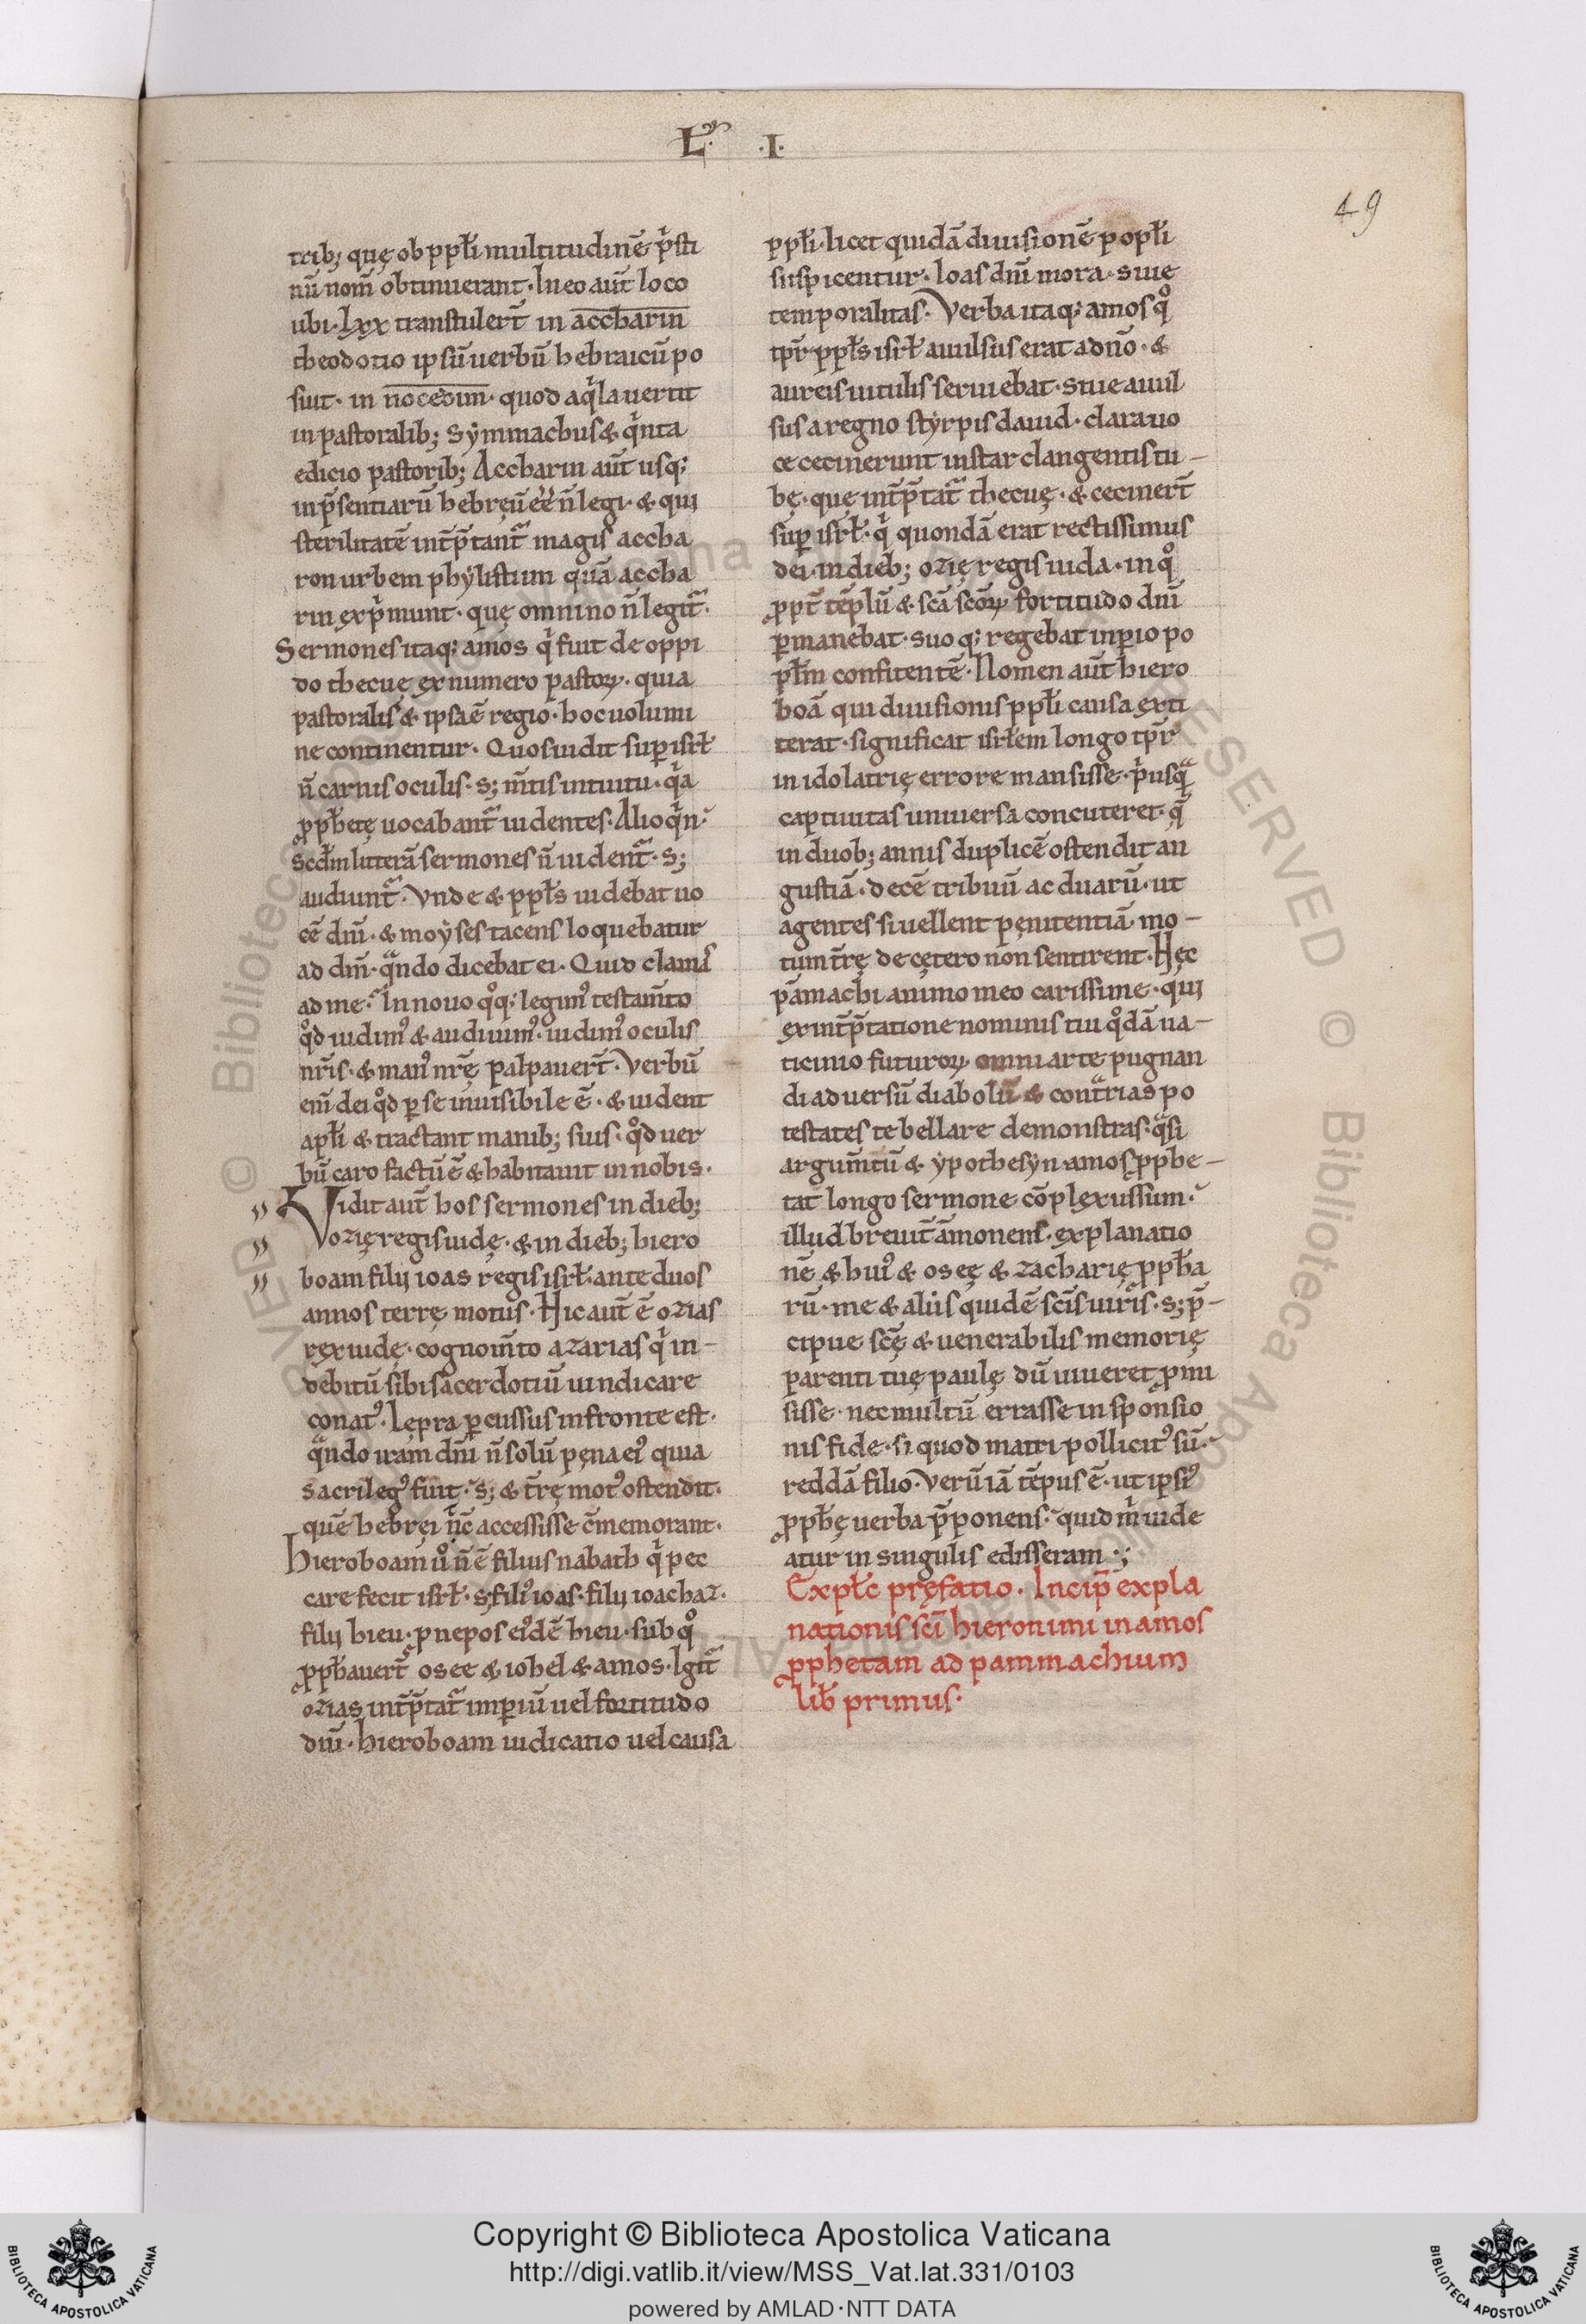 L. .I.
49
trib; quę ob ppľi multitudinē p'sti
nū nom̄ obtinuerant. In eo aūt loco
ubi. lxx transtulerт̄ in accharin
theodotio ipsū uerbū hebraicū po
suit. in nocedim. quod aq'la uertit
in pastoralib; Symmachus & q'nta
edicio pastorib; Accharin aūt usq;
in p̄sentiarū hebręū eē n̄ legi. & qui
sterilitatē int̄p̄tant̄ magis accha
ron urbem phylistiim quā accha
rin exp'munt. quę omnino n̄ legit̄.
Sermones itaq; amos q' fuit de oppi
do thecue ex numero pastoꝝ. quia
pastoralis & ipsa ē regio. hoc uolumi
ne continentur. Quos uidit suꝑ isrł
n̄ carnis oculis. s; m̄tis intuitu. q'a
ꝓph̄etę uocabant̄ uidentes. Alioq'n
scđm litterā sermones n̄ uident̄. s;
audiunt̄. Vnde & ppľs uidebat uo
cē dn̄i. & moyses tacens loquebatur
ad dm̄. qͣndo dicebat ei. Quid clamas
ad me. In nouo qͦq; legimꝰ testam̄to
qͦd uidimꝰ & audiuimꝰ. uidimꝰ oculis
nr̄is. & manꝰ nr̄ę palpauerт̄. Verbū
eni̅ dei qͦd ꝑ se inuisibile ē. & uident
apľi & tractant manib; suis. qͦd uer
bū caro factū ē & habitauit in nobis.
Vidit aūt hos sermones in dieb;
ozię regis iudę. & in dieb; hiero
boam filij ioas regis isrł. ante duos
annos terrę motus. Hic aūt ē ozias
rex iudę. cognom̄to azarias q' in-
debitū sibi sacerdotiū uindicare
conatꝰ. lepra ꝑcussus in fronte est.
qͣndo iram dn̄i n̄ solū pęna eiꝰ quia
sacrilegꝰ fuit. s; & t̄rę motꝰ ostendit.
quē hebręi n̄c accessisse c̄memorant.
Hieroboam uͦ n̄ ē filius nabath q' pec
care fecit isrł. s; filiꝰ ioas. filij ioachaz.
filij hieu. pnepos eiꝰdē hieu. sub qͦ
ꝓph̄auerт̄ osee & iohel & amos. Igit̄
ozias int̄p̄tat̄ imꝑiū uel fortitudo
dn̄i. hieroboam iudicatio uel causa
ppľi. licet quidā diuisionē popľi
suspicentur. Ioas dn̄i mora. siue
temporalitas. Verba itaq; amos qͦ
tp̄r ppľs isrł auulsus erat a dn̄o. &
aureis uitulis seruiebat. siue auul
sus a regno styrpis dauid. clara uo
ce cecinerunt instar clangentis tu-
bę. que int̄p̄tat̄ thecuę. & cecinerт̄
suꝑ isrł. q' quondā erat rectissimus
dei. in dieb; ozię regis iuda. in qͦ
ꝓpт̄ tēplū & scā scōꝝ fortitudo dn̄i
ꝑmanebat. suoq; regebat inꝑio po
pľm confitentē. Nomen aūt hiero
boā qui diuisionis ppľi causa exti
terat. significat isrłem longo tp̄r
in idolatrię errore mansisse. p'usqͣ
captiuitas uniuersa concuteret. q̄
in duob; annis duplicē ostendit an
gustiā. decē tribuū ac duarū. ut
agentes si uellent pęnitentiā. mo-
tum t̄rę de cętero non sentirent. Hęc
pāmachi animo meo carissime. qui
ex int̄p̄tatione nominis tui qͦdā ua-
ticinio futuroꝝ omni arte pugnan
di aduersū diabolū & cont̄rias po
testates te bellare demonstras. qͣsi
argum̄tū & ypothesyn amos ꝓphe-
tat longo sermone cōplexus sum.
illud breuit̄ āmonens. explanatio
nē & huiꝰ & osęę & zacharię ꝓph̄a
rū. me & aliis quidē scīs uiris. s; p̄-
cipue scę̄ & uenerabilis memorię
parenti tuę paulę dū uiueret ꝓmi
sisse. nec multū errasse in sponsio
nis fide. si quod matri pollicitꝰ sū.
reddā filio. Verū iā tēpus ē. ut ipsiꝰ
ꝓph̄ę uerba p̄ponens. quid m' uide
atur in singulis edisseram.;
Expłc pręfatio. Incip̄ expla
nationis sc̄i hieronimi in amos
ꝓphetam ad pammachium
lib̄ primus.
Copyright © Biblioteca Apostolica Vaticana
http://digi.vatlib.it/view/MSS_Vat.lat.331/0103
powered by AMLAD·NTT DATA
BIBLIOTECA APOSTOLICA VATICANA
BIBLIOTECA APOSTOLICA VATICANA